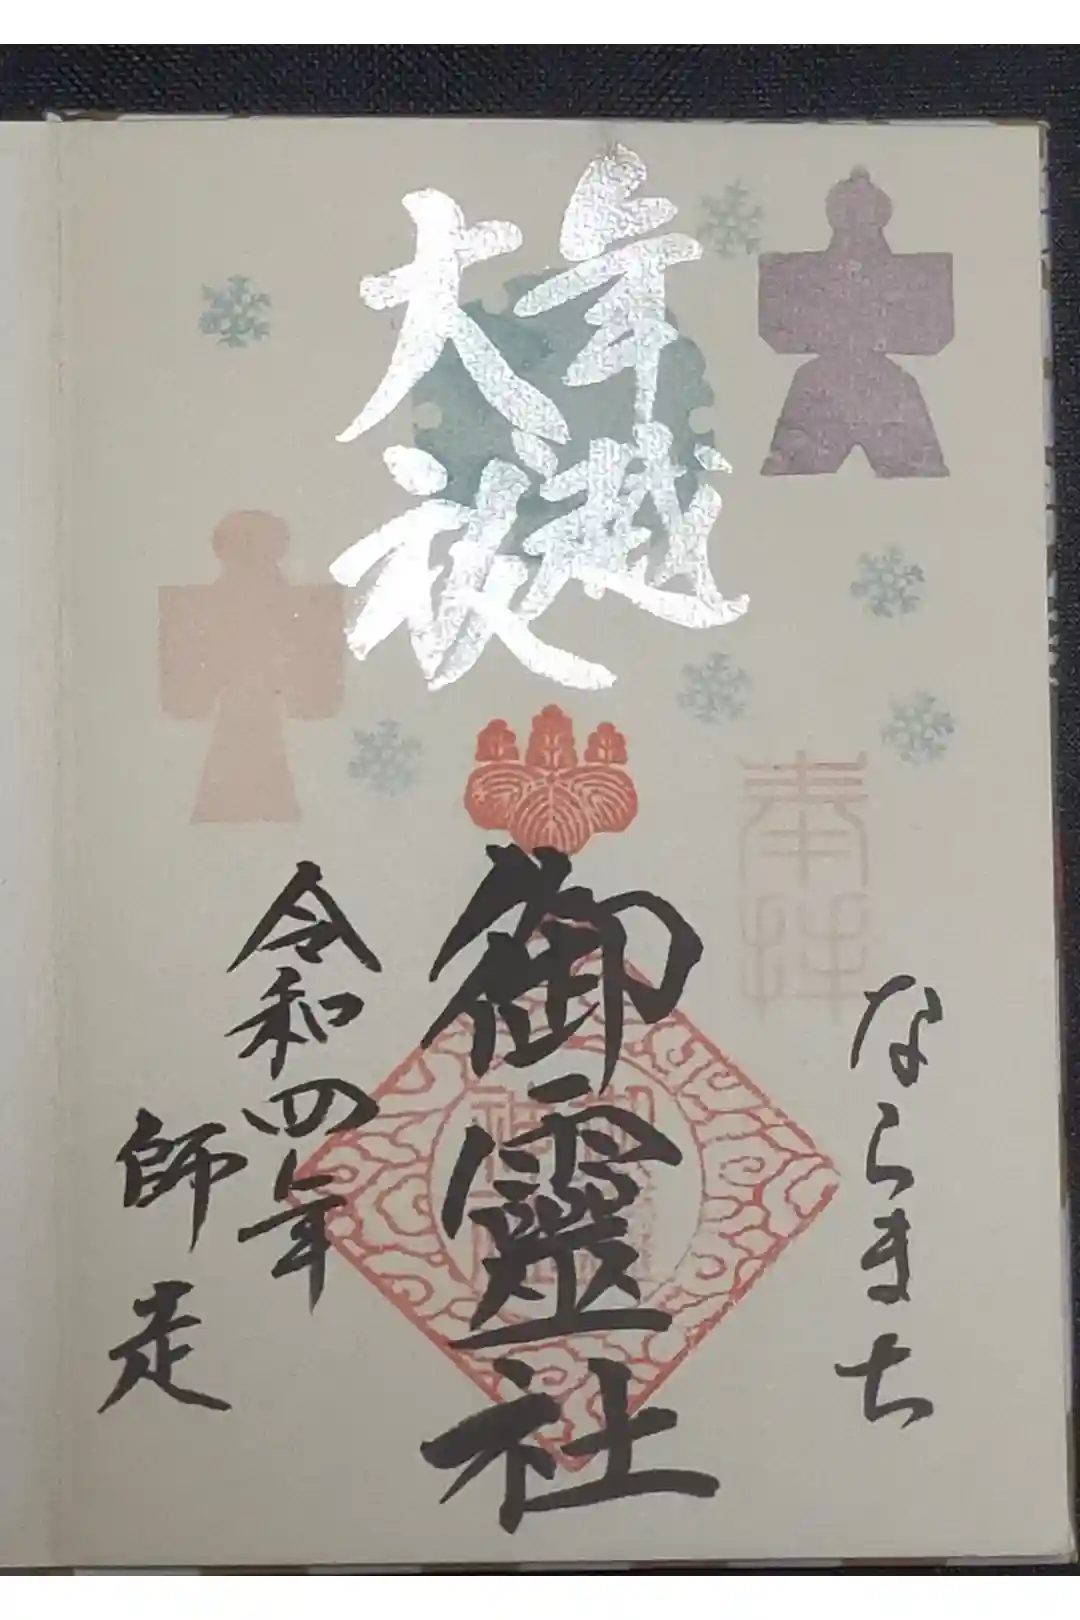 年越
大祓
奉拝
ならまち
御霊社
令和四年
師走